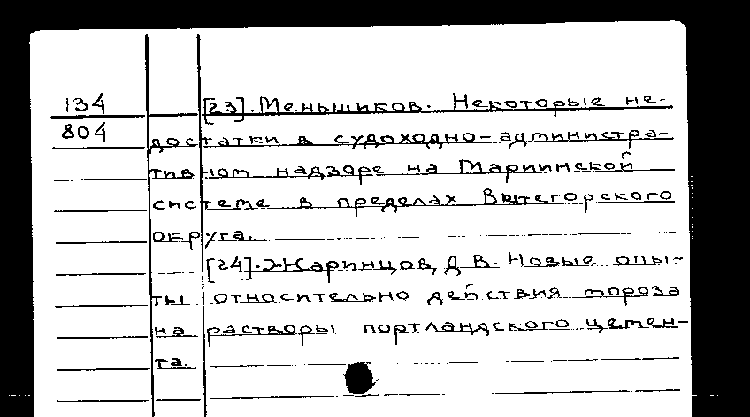 134 [23]. Меньшиков. Некоторые не-
804 достатки в судоходно-администра-
тивном надзоре на Мариинской
системе в пределах Вытегорского
округа.
[24]. Жаринцов, Д. В. Новые опы-
ты относительно действия мороза
на растворы портландского цемен-
та.